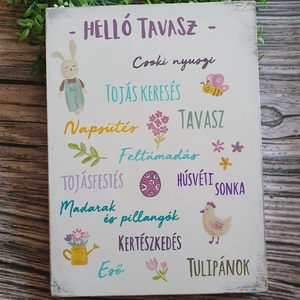 - HELLÓ TAVASZ -
Csoki nyuszi
TOJÁS KERESÉS
Napsütés
TAVASZ
Feltámadás
TOJÁSFESTÉS
HÚSVÉTI
SONKA
Madarak
és pillangók
KERTÉSZKEDÉS
Eső
TULIPÁNOK